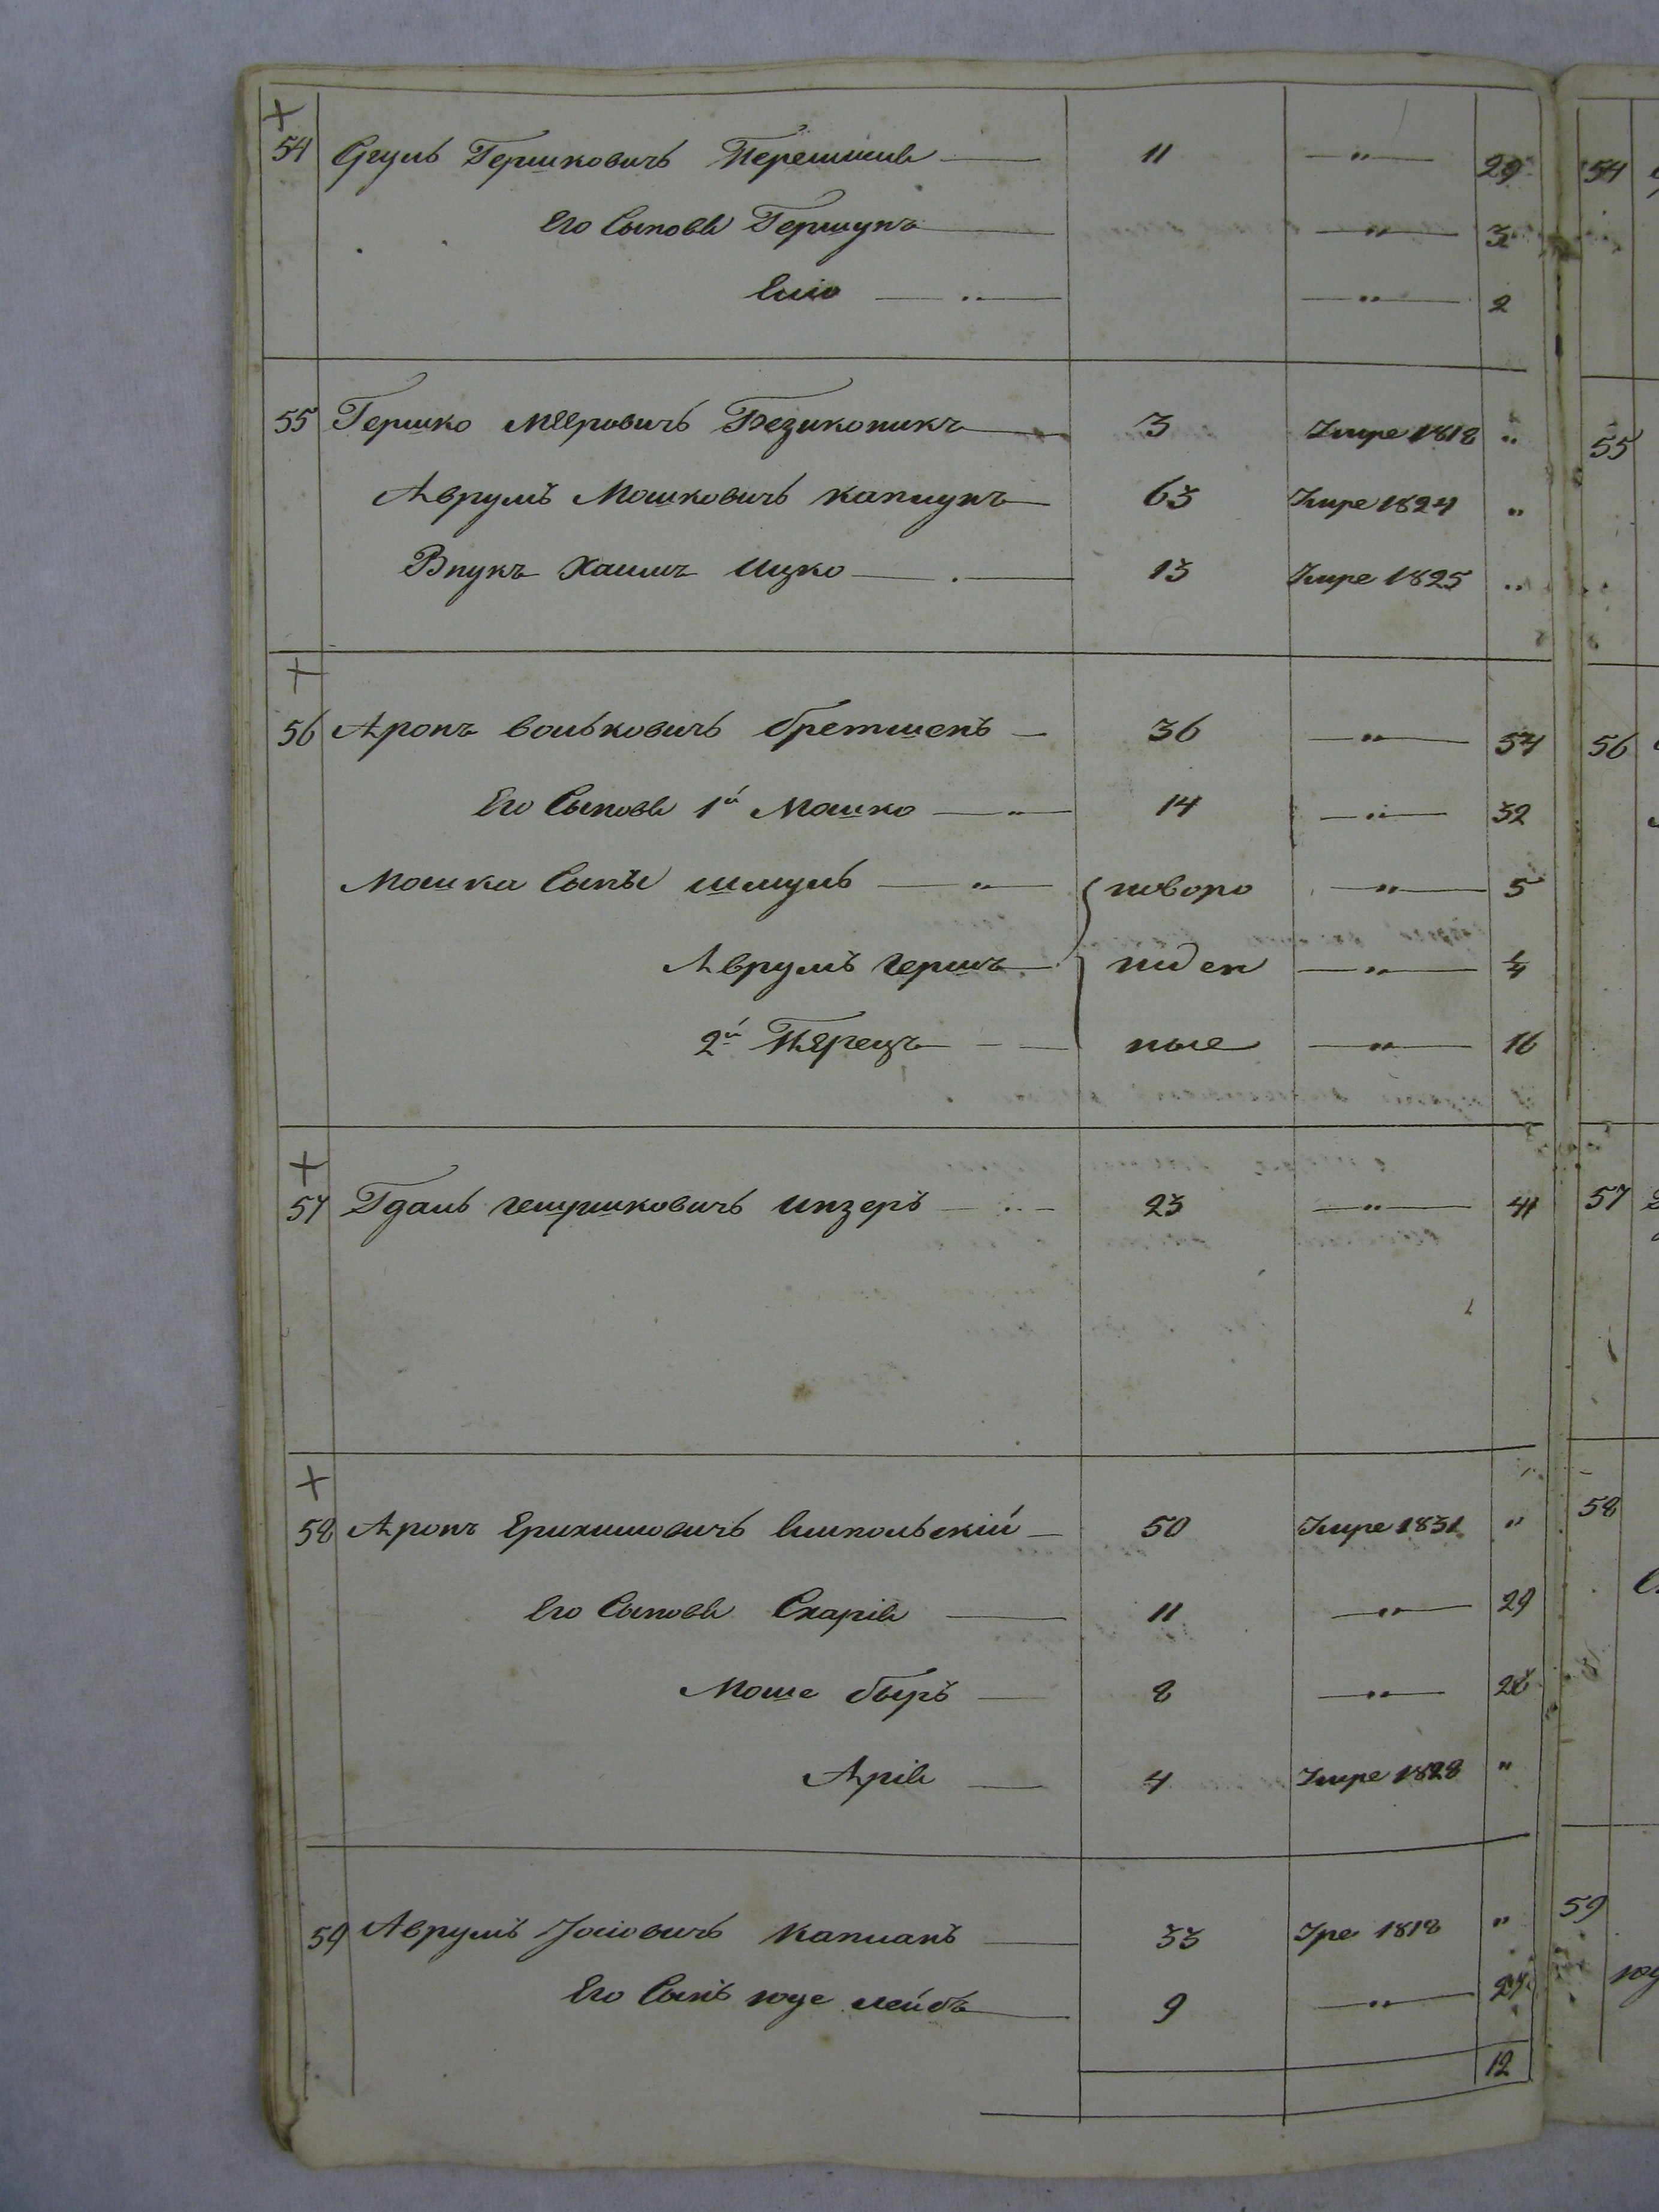 54 Сруль Гершковичъ Перешивъ 11 — " — 29
Его Сыновья Гершунъ — " — 3
Елио — " — 2
55 Гершко Мееровичъ Безиконикъ 3 Умре 1818 "
Аврумъ Мошковичъ Каплунъ 63 Умре 1824 "
Внукъ Хаимъ Ицко 13 Умре 1825 "
56 Аронъ Вольковичъ Бретшенъ 36 — " — 54
Его Сыновья 1й Мошко — " — 14 — " — 32
Мошка Сыны Шмуль — " — новоро — " — 5
Аврумъ Гершъ жден — " — ¼
2й Перецъ ные — " — 16
57 Гдаль Гершковичъ Инзеръ 23 — " — 41
58 Аронъ Ерухимовичъ Смпольскій 50 Умре 1831 "
Его Сыновья Схарія 11 — " — 29
Моше Быръ 8 — " — 26
Арія 4 Умре 1828 "
59 Аврумъ Іосіовичъ Капланъ 33 Уре 1818 "
Его Сынъ Юде Лейбъ 9 — " — 27
12
54
55
56
57
58
59